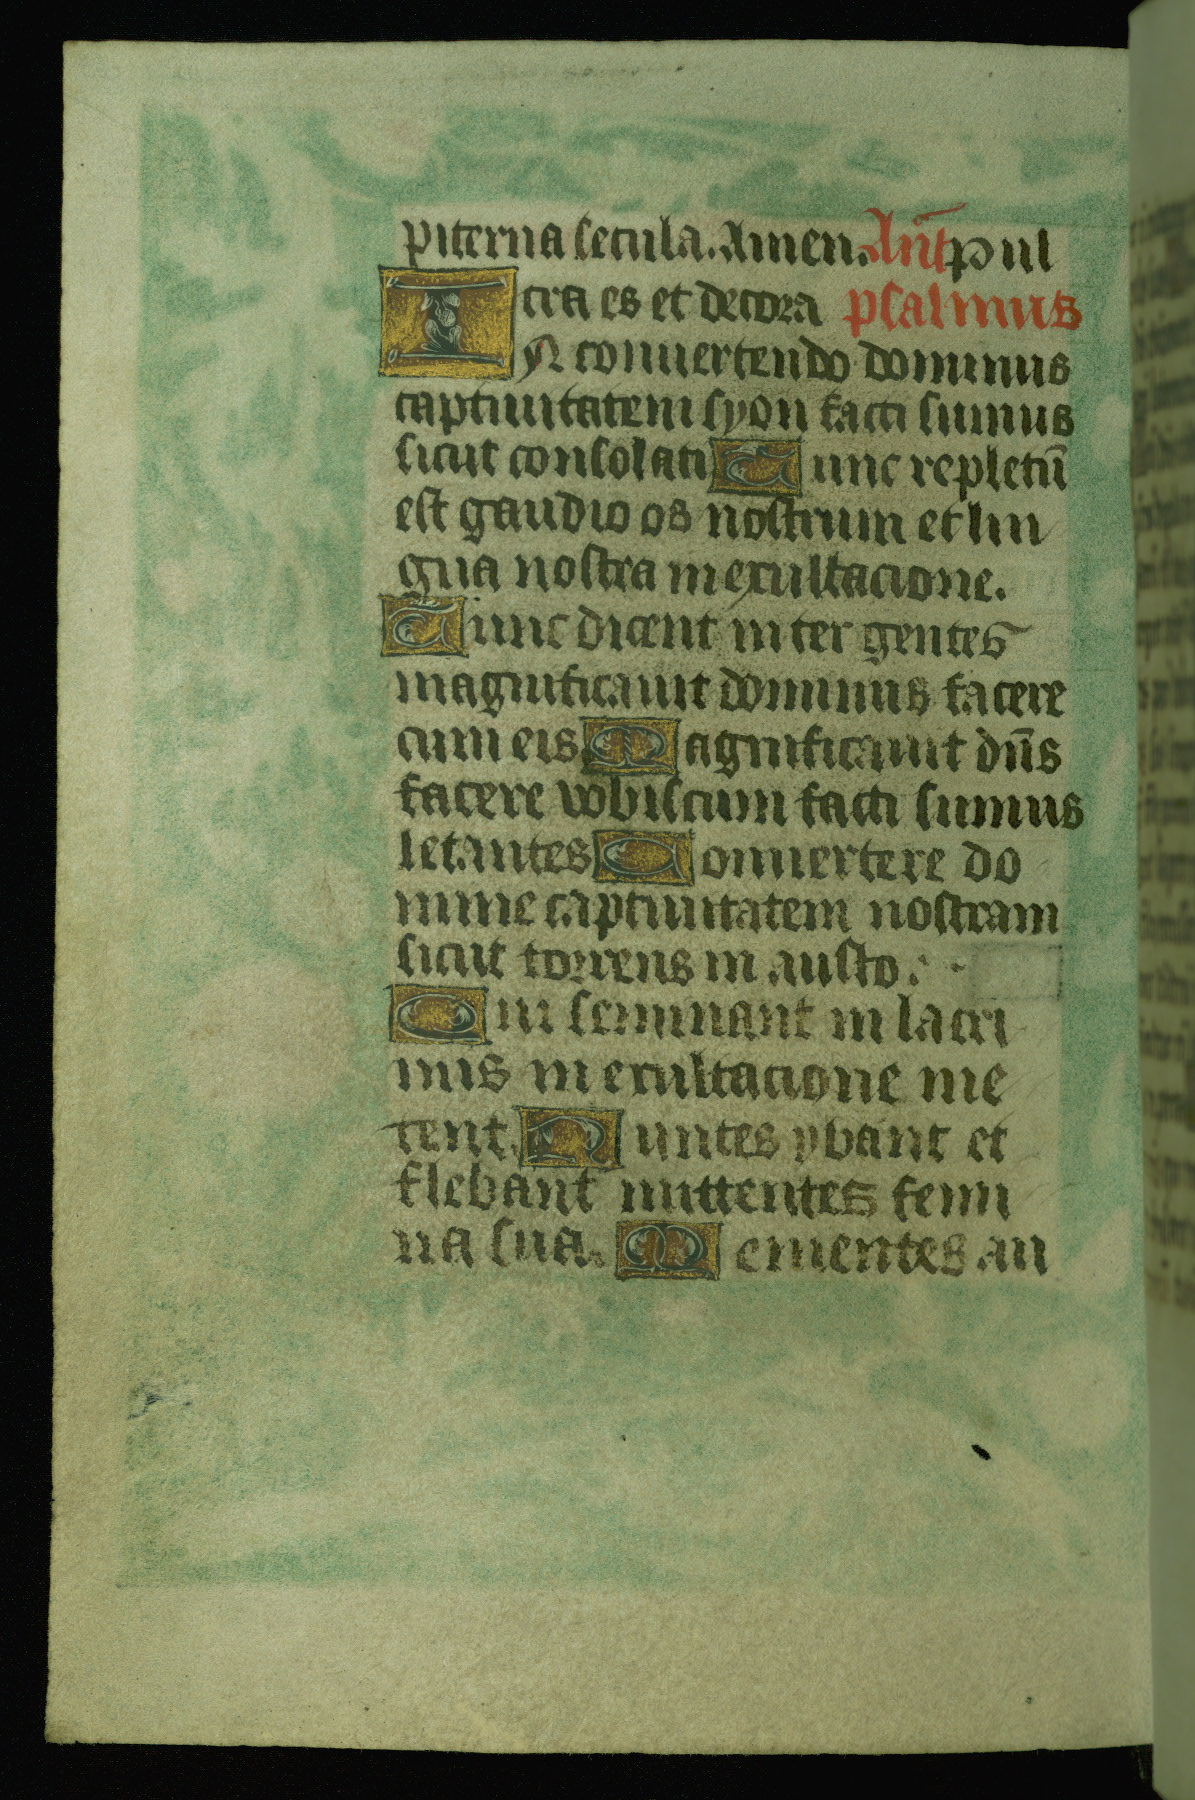 piterna secula. Amen. Ant̄ pul
cra es et decora psalmus
IN conuertendo dominus
captiuitatem syon facti sumus
sicut consolati Tunc repletū
est gaudio os nostrum et lin
gua nostra in exultacione.
Tunc dicent inter gentes
magnificauit dominus facere
cum eis Magnificauit dn̄s
facere vobiscum facti sumus
letantes Conuertere do
mine captiuitatem nostram
sicut torrens in austo.
Qui seminant in lacri
mis in exultacione me
tent. Euntes ybant et
flebant mittentes semi
na sua. Uenientes au